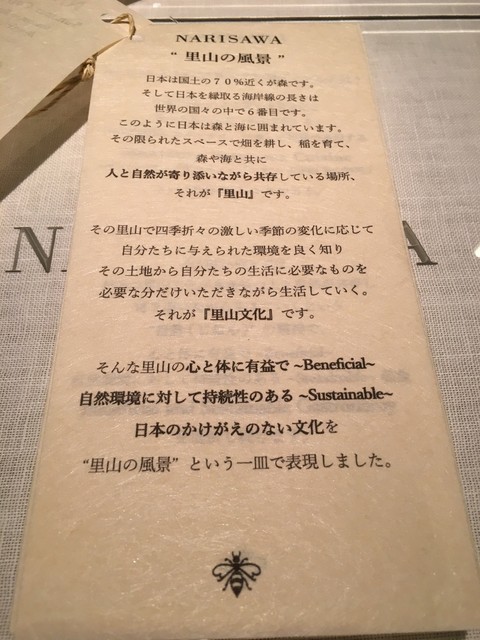 NARISAWA
“里山の風景”
日本は国土の７０％近くが森です。
そして日本を縁取る海岸線の長さは
世界の国々の中で６番目です。
このように日本は森と海に囲まれています。
その限られたスペースで畑を耕し、稲を育て、
森や海と共に
人と自然が寄り添いながら共存している場所、
それが『里山』です。
その里山で四季折々の激しい季節の変化に応じて
自分たちに与えられた環境を良く知り
その土地から自分たちの生活に必要なものを
必要な分だけいただきながら生活していく。
それが『里山文化』です。
そんな里山の心と体に有益で ~Beneficial~
自然環境に対して持続性のある ~Sustainable~
日本のかけがえのない文化を
“里山の風景” という一皿で表現しました。